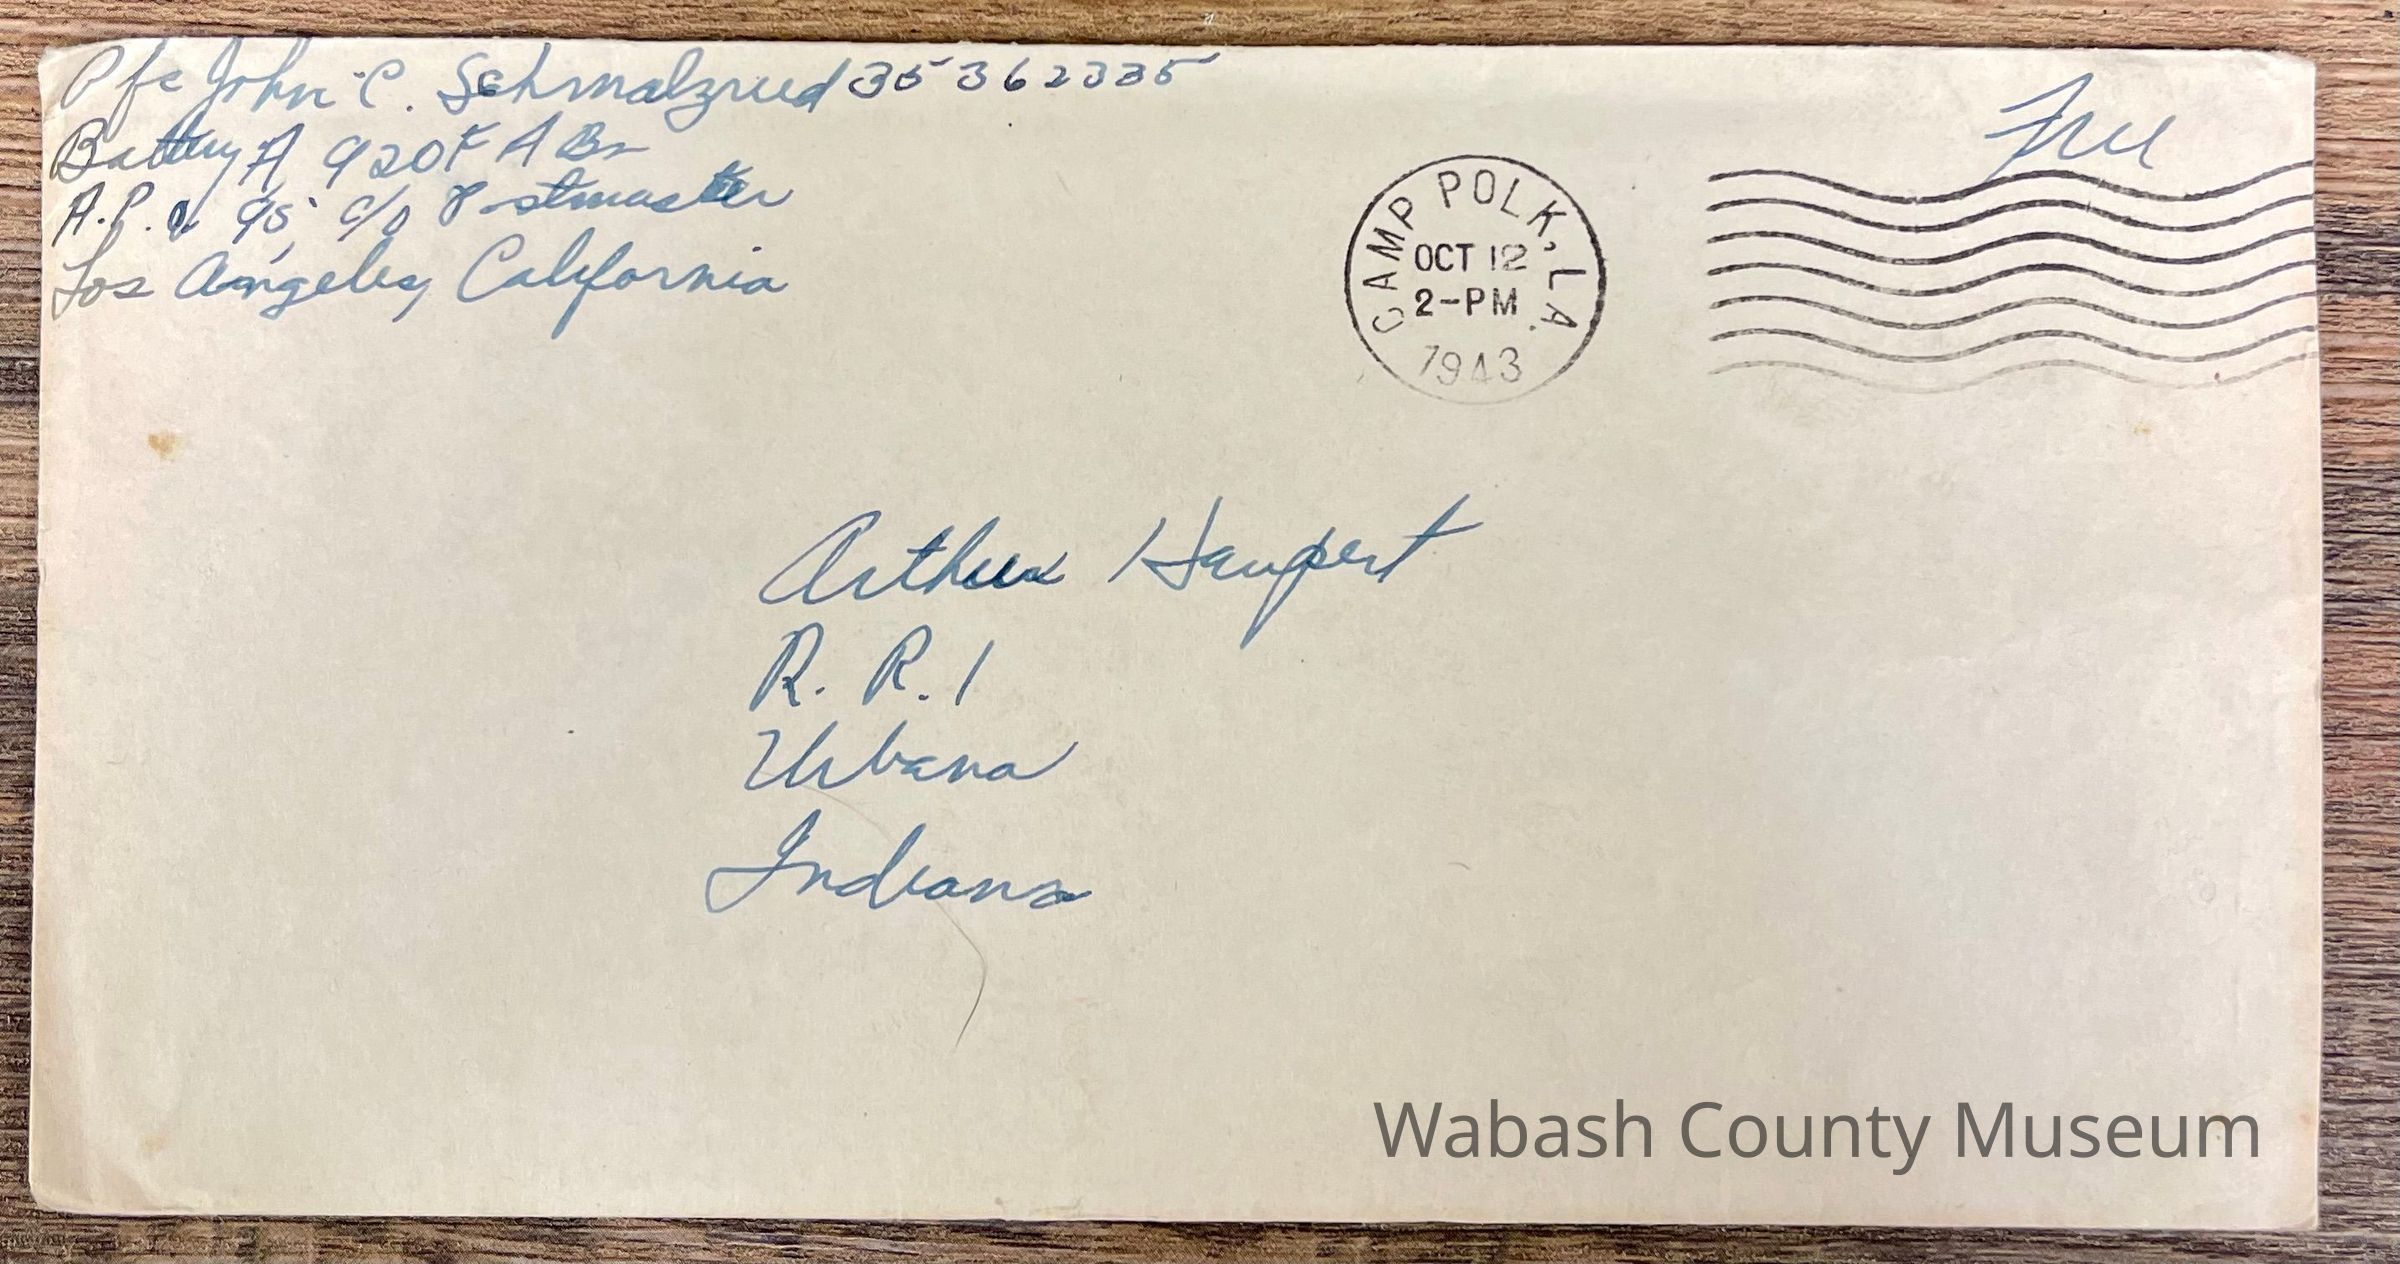 Pfc John C. Schmalzried 35362335
Battery A 920 F A Bn
A.P.O 95 c/o Postmaster
Los Angeles, California
Free
CAMP POLK, LA.
OCT 12
2-PM
1943
Arthur Haupert
R. R. 1
Urbana
Indiana
Wabash County Museum